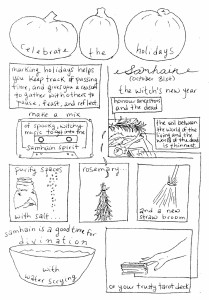 celebrate the holidays
marking holidays helps
you keep track of passing
time, and gives you a reason
to gather with others to
pause, feast, and reflect
Samhain
(October 31st)
the witch's new year
honour ancestors
and the dead
the veil between
the world of the
living and the
world of the dead
is thinnest
make a mix
of spooky, witchy
music to get into the
samhain spirit
purify spaces
with salt...
rosemary...
and a new
straw broom
samhain is a good time for
divination
with
water scrying
or your trusty tarot deck